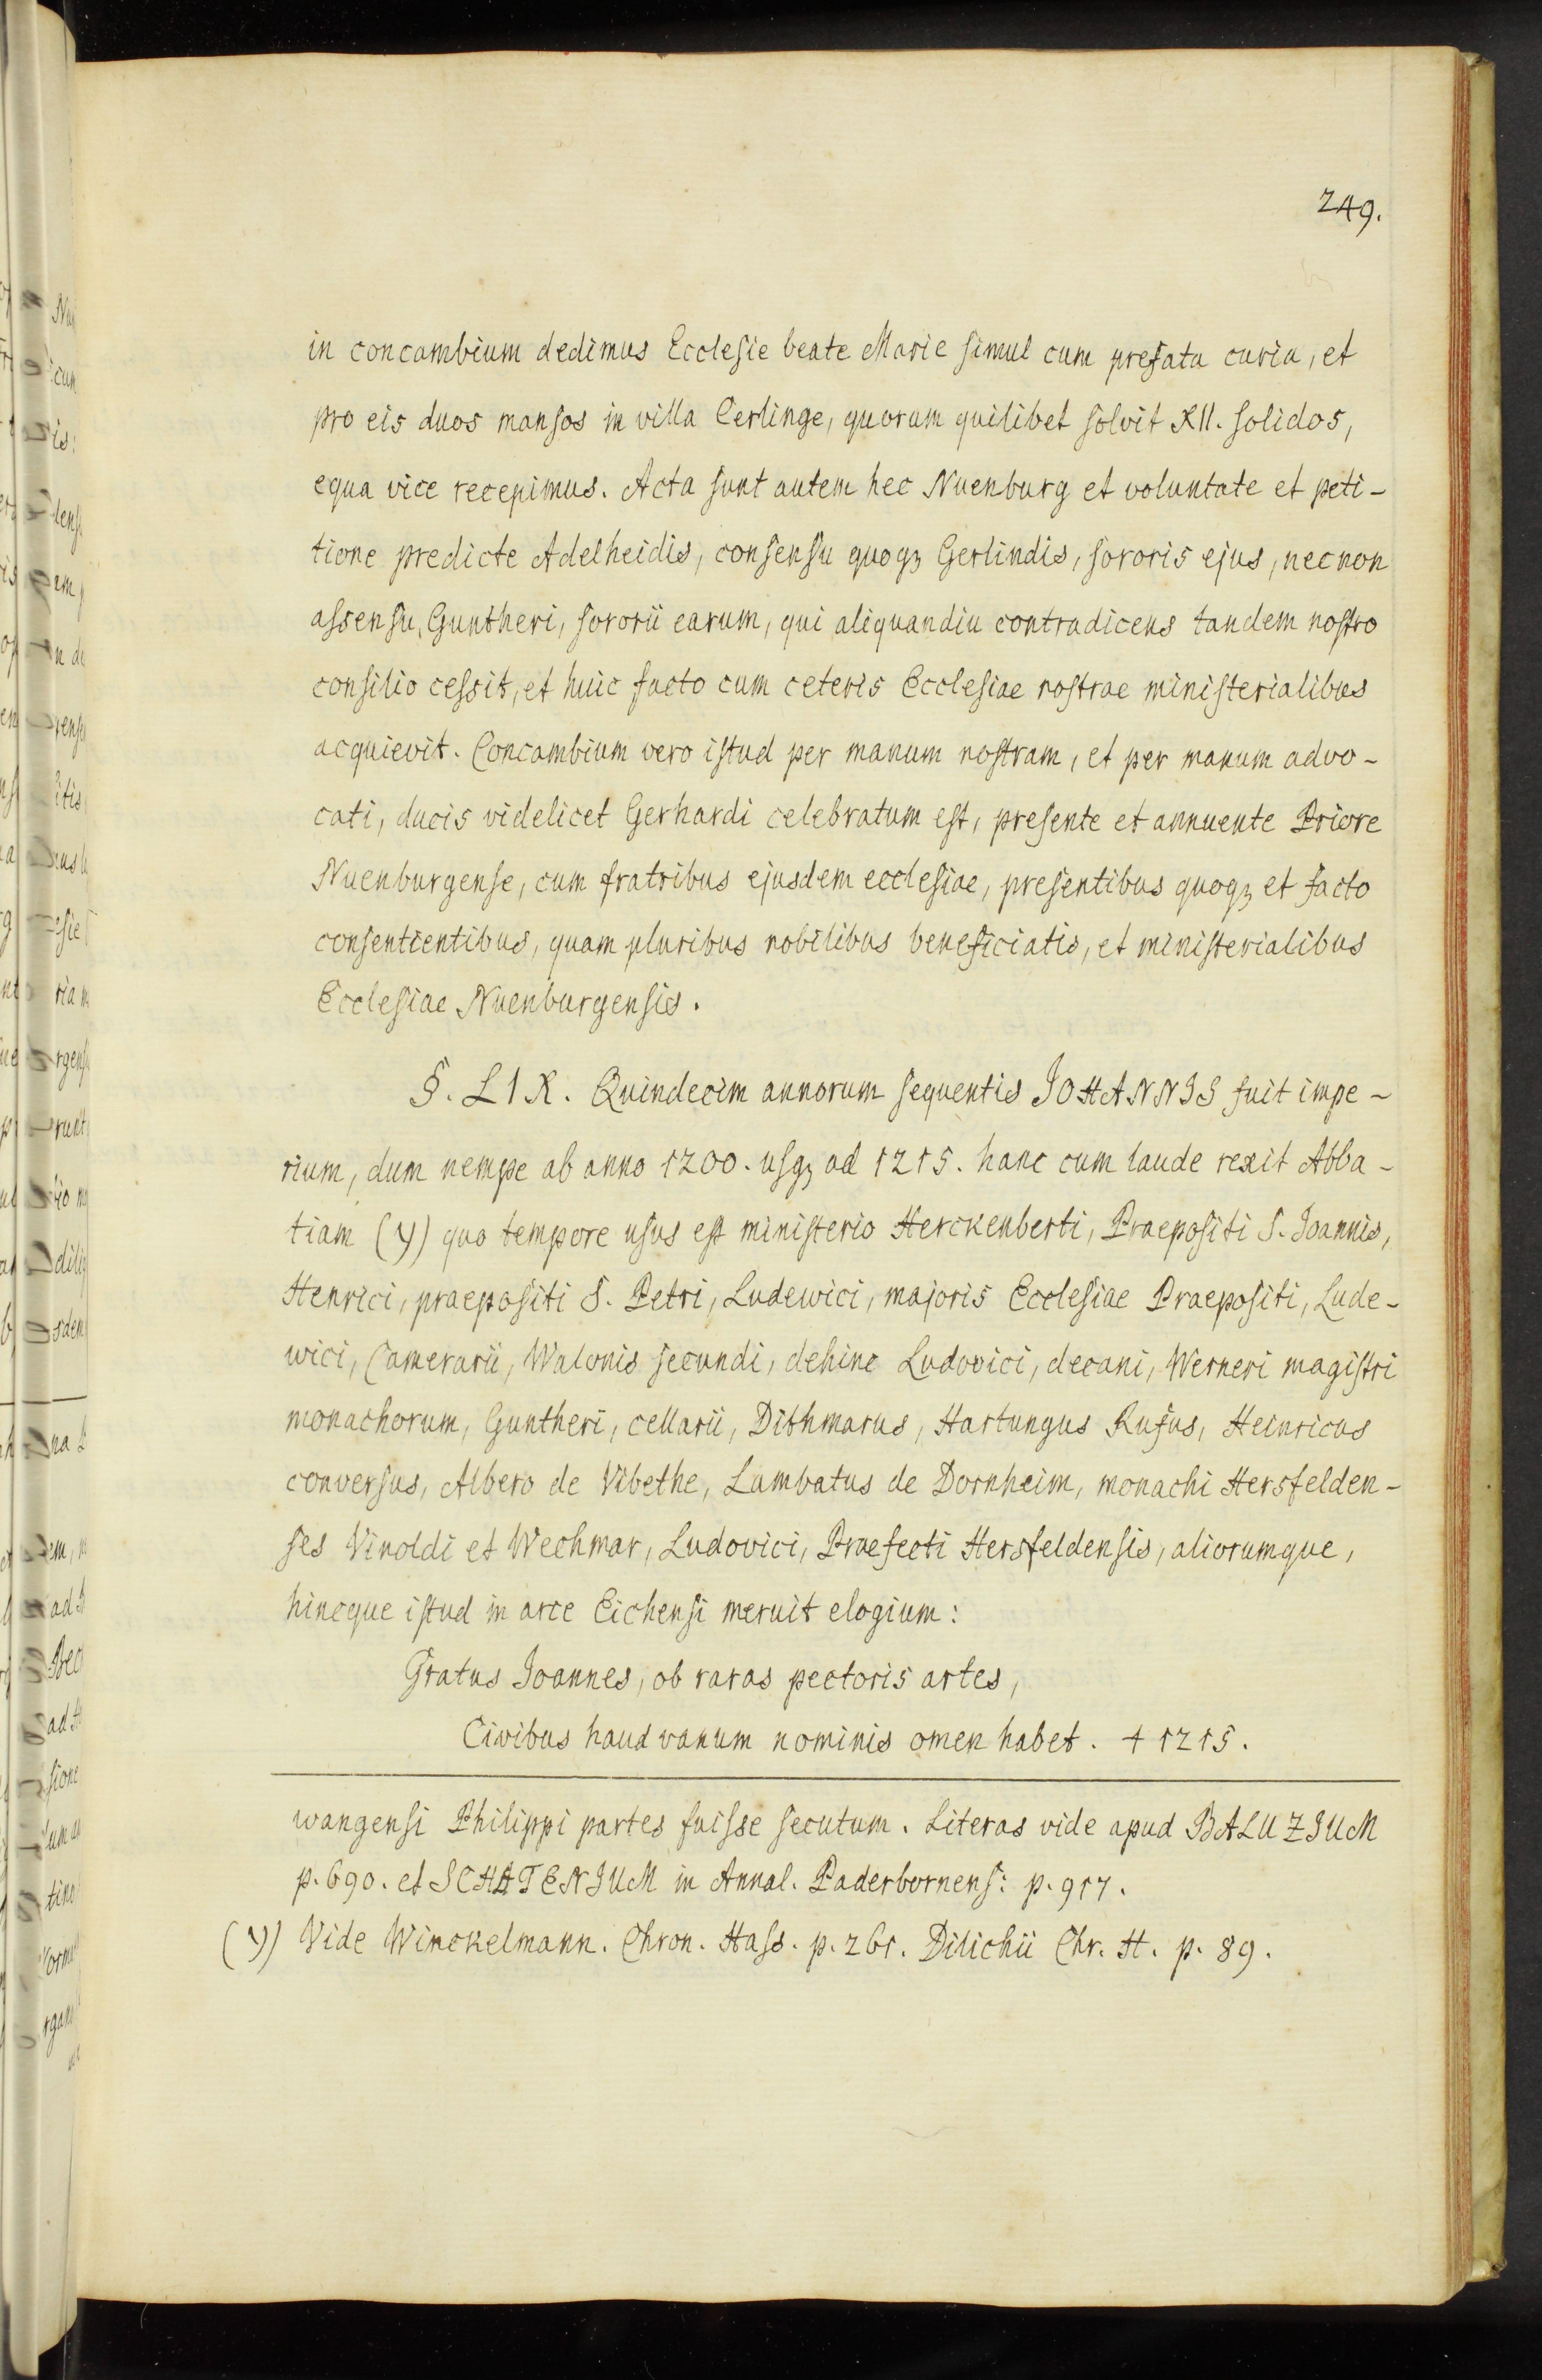 249.
in concambium dedimus Ecclesie beate Marie simul cum prefata curia, et
pro eis duos mansos in villa Cerlinge, quorum quilibet solvit XII. solidos,
equa vice recepimus. Acta sunt autem hec Nuenburg et voluntate et peti-
tione predicte Adelheidis, consensu quoqꝫ Gerlindis, sororis ejus, necnon
assensu, Guntheri, sororii earum, qui aliquandiu contradicens tandem nostro
consilio cessit, et huic facto cum ceteris Ecclesiae nostrae ministerialibus
acquievit. Concambium vero istud per manum nostram, et per manum advo-
cati, ducis videlicet Gerhardi celebratum est, presente et annuente Priore
Nuenburgense, cum fratribus ejusdem ecclesiae, presentibus quoqꝫ et facto
consentientibus, quam pluribus nobilibus beneficiatis, et ministerialibus
Ecclesiae Nuenburgensis.
§. LIX. Quindecim annorum sequentis JOHANNIS fuit impe-
rium, dum nempe ab anno 1200. usqꝫ ad 1215. hanc cum laude rexit Abba-
tiam (y) quo tempore usus est ministerio Herckenberti, Praepositi S. Joannis,
Henrici, praepositi S. Petri, Ludewici, majoris Ecclesiae Praepositi, Lude-
wici, Camerarii, Walonis secundi, dehinc Ludovici, decani, Werneri magistri
monachorum, Guntheri, cellarii, Dithmarus, Hartungus Rufus, Heinricus
conversus, Albero de Vibethe, Lambatus de Dornheim, monachi Hersfelden-
ses Vinoldi et Wechmar, Ludovici, Praefecti Hersfeldensis, aliorumque,
hincque istud in arce Eichensi meruit elogium:
Gratus Joannes, ob raras pectoris artes,
Civibus haud vanum nominis omen habet. † 1215.
wangensi Philippi partes fuisse secutum. Literas vide apud BALUZIUM
p. 690. et SCHATENIUM in Annal. Paderbornens: p. 917.
(y) Vide Winckelmann. Chron. Hass. p. 261. Dilichii Chr. H. p. 89.